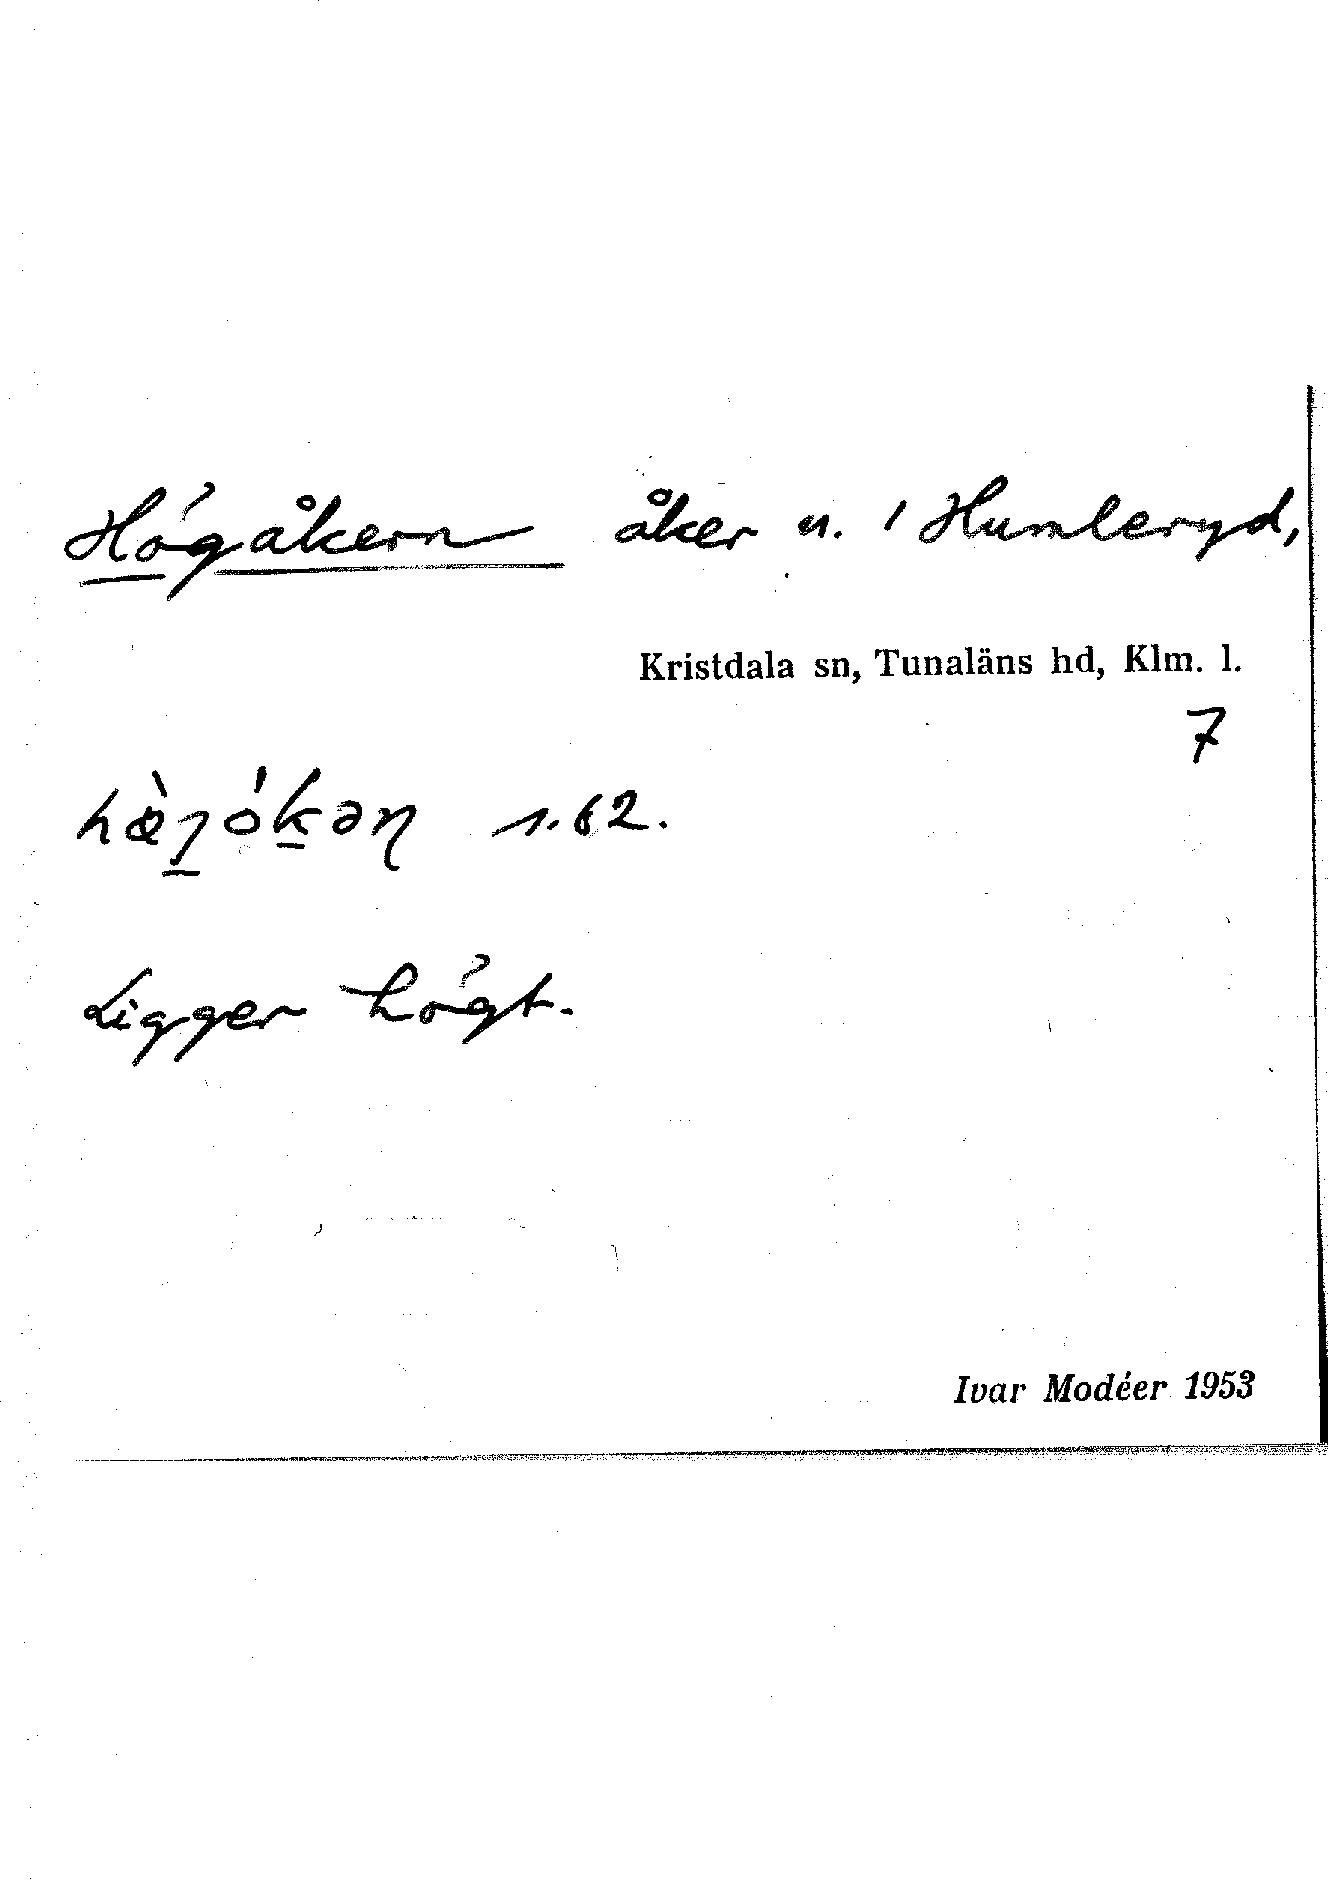 Högåkern åker n. 1 Humleryd,
Kristdala sn, Tunaläns hd, Klm. l.
7
s. 62.
Ligger högt.
Ivar Modéer 1953